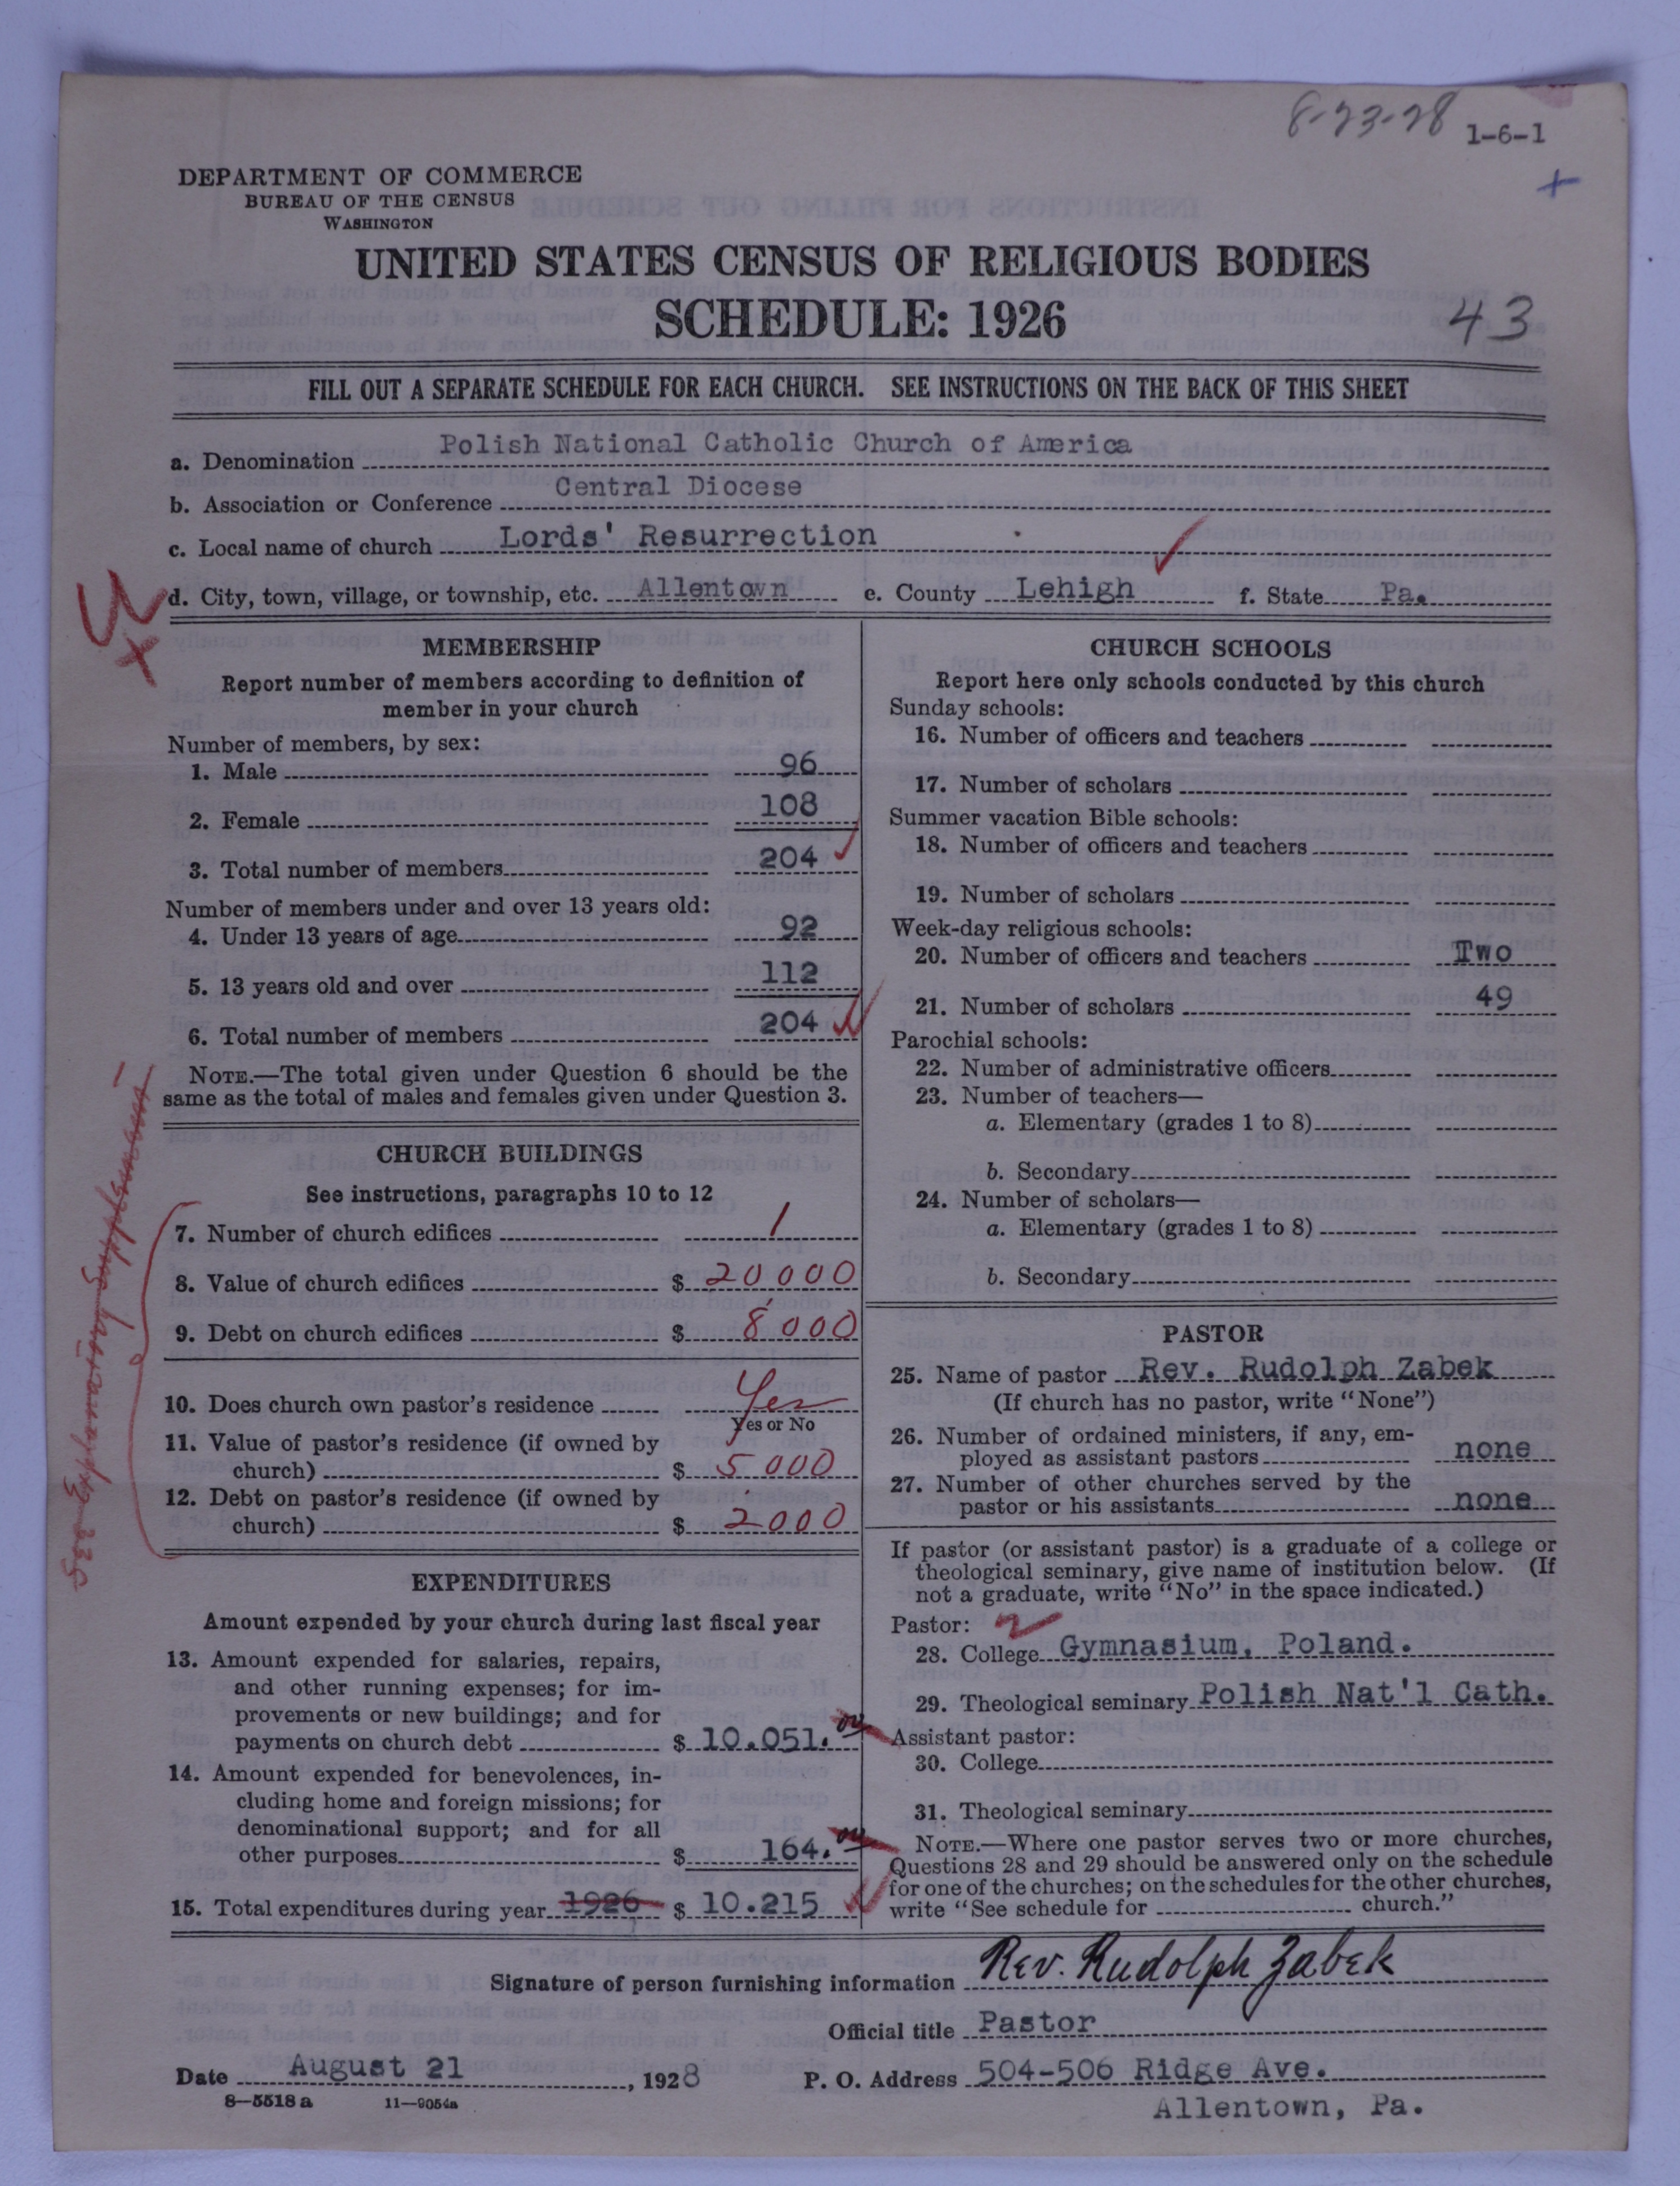 8-23-28
1-6-1
+
DEPARTMENT OF COMMERCE
BUREAU OF THE CENSUS
WASHINGTON
UNITED STATES CENSUS OF RELIGIOUS BODIES
SCHEDULE: 1926
43
FILL OUT A SEPARATE SCHEDULE FOR EACH CHURCH. SEE INSTRUCTIONS ON THE BACK OF THIS SHEET
a. Denomination Polish National Catholic Church of America
b. Association or Conference Central Diocese
c. Local name of church Lords' Resurrection
d. City, town, village, or township, etc. Allentown e. County Lehigh f. State Pa.
MEMBERSHIP
Report number of members according to definition of
member in your church
Number of members, by sex:
1. Male 96
2. Female 108
3. Total number of members 204
Number of members under and over 13 years old:
4. Under 13 years of age 92
5. 13 years old and over 112
6. Total number of members 204
NOTE.—The total given under Question 6 should be the
same as the total of males and females given under Question 3.
CHURCH BUILDINGS
See instructions, paragraphs 10 to 12
7. Number of church edifices 1
8. Value of church edifices $ 20,000
9. Debt on church edifices $ 8,000
10. Does church own pastor's residence Yes
Yes or No
11. Value of pastor's residence (if owned by
church) $ 5,000
12. Debt on pastor's residence (if owned by
church) $ 2,000
EXPENDITURES
Amount expended by your church during last fiscal year
13. Amount expended for salaries, repairs,
and other running expenses; for im-
provements or new buildings; and for
payments on church debt $ 10.051.
14. Amount expended for benevolences, in-
cluding home and foreign missions; for
denominational support; and for all
other purposes $ 164.
15. Total expenditures during year 1926 $ 10.215
CHURCH SCHOOLS
Report here only schools conducted by this church
Sunday schools:
16. Number of officers and teachers
17. Number of scholars
Summer vacation Bible schools:
18. Number of officers and teachers
19. Number of scholars
Week-day religious schools:
20. Number of officers and teachers Two
21. Number of scholars 49
Parochial schools:
22. Number of administrative officers
23. Number of teachers—
a. Elementary (grades 1 to 8)
b. Secondary
24. Number of scholars—
a. Elementary (grades 1 to 8)
b. Secondary
PASTOR
25. Name of pastor Rev. Rudolph Zabek
(If church has no pastor, write "None")
26. Number of ordained ministers, if any, em-
ployed as assistant pastors none
27. Number of other churches served by the
pastor or his assistants none
If pastor (or assistant pastor) is a graduate of a college or
theological seminary, give name of institution below. (If
not a graduate, write "No" in the space indicated.)
Pastor:
28. College Gymnasium, Poland.
29. Theological seminary Polish Nat'l Cath.
Assistant pastor:
30. College
31. Theological seminary
NOTE.—Where one pastor serves two or more churches,
Questions 28 and 29 should be answered only on the schedule
for one of the churches; on the schedules for the other churches,
write "See schedule for church."
Signature of person furnishing information Rev. Rudolph Zabek
Official title Pastor
Date August 21, 1928 P. O. Address 504-506 Ridge Ave.
8—5518 a 11—9054a Allentown, Pa.